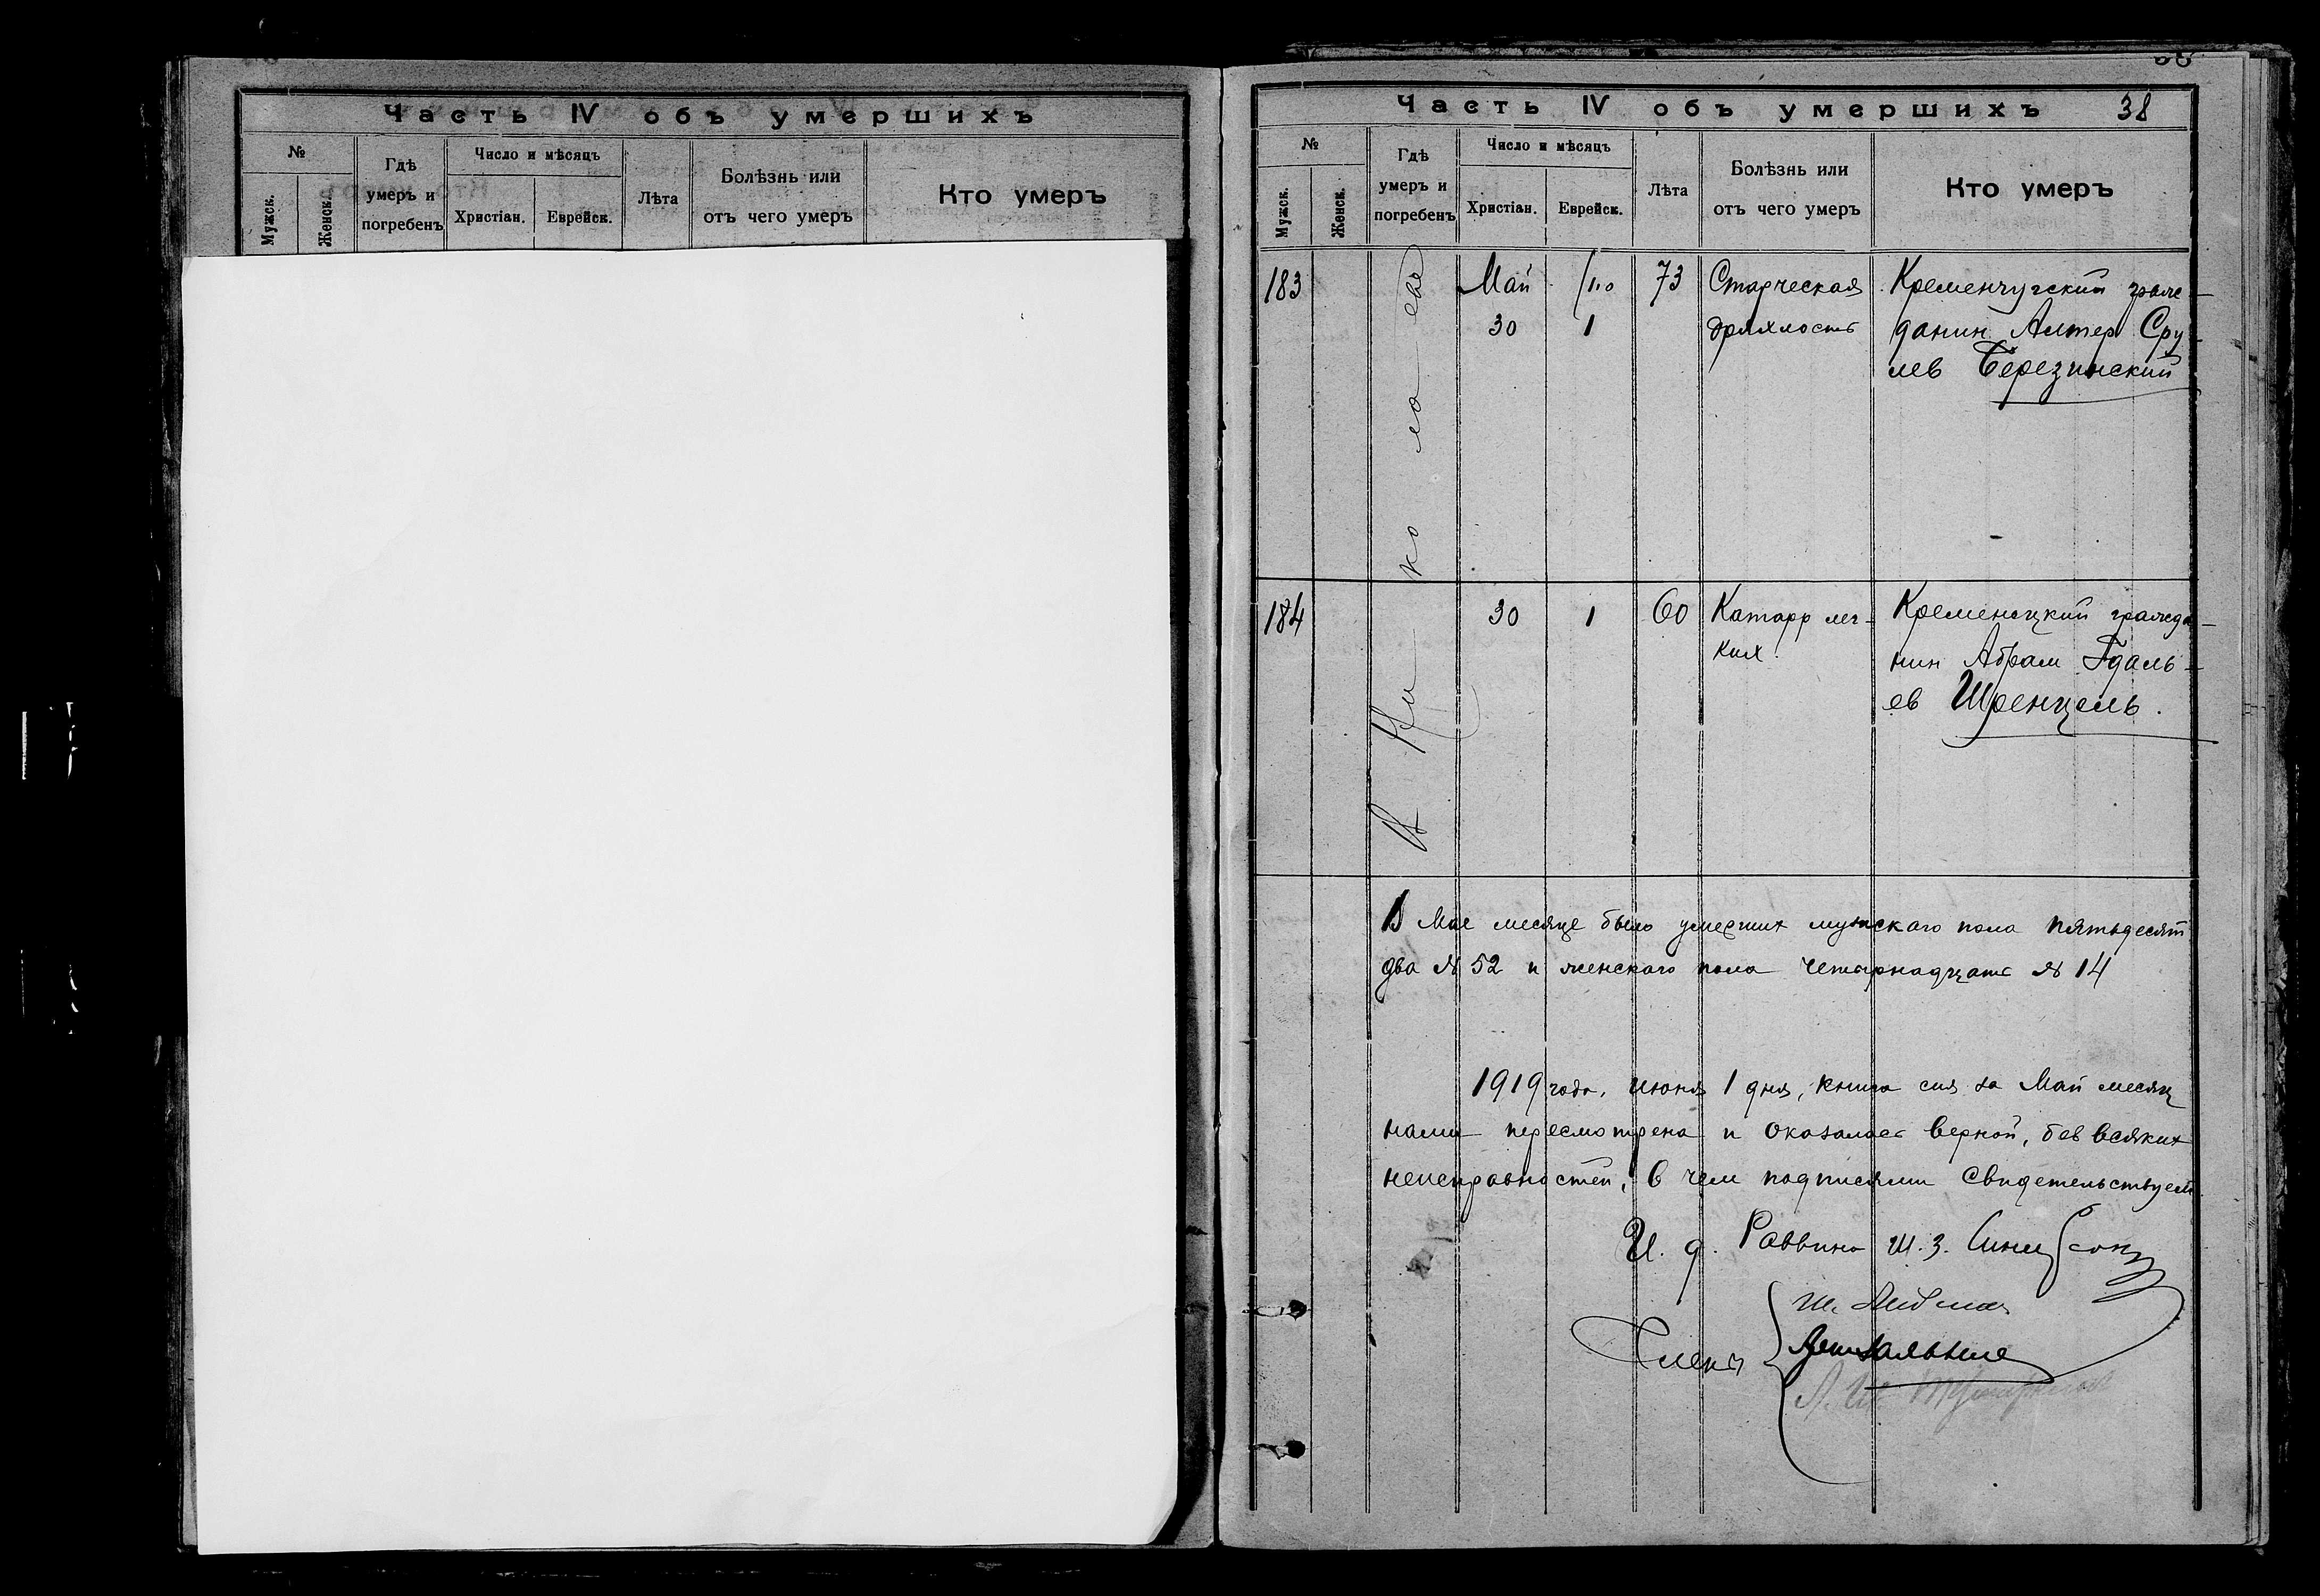 Часть IV объ умершихъ
№
Мужск.
Женск.
Гдѣ
умеръ и
погребенъ
Число и мѣсяцъ
Христіан.
Еврейск.
Лѣта
Болѣзнь или
отъ чего умеръ
Кто умеръ
Часть IV объ умершихъ 38
№
Мужск.
Женск.
Гдѣ
умеръ и
погребенъ
Число и мѣсяцъ
Христіан.
Еврейск.
Лѣта
Болѣзнь или
отъ чего умеръ
Кто умеръ
В Николаеве
183
Май
30
1
73
Старческая
дряхлость
Кременчугский граж
данин Алтер Сру
лев Березинский
184
30
1
60
Катарр лег-
ких.
Кременецкий гражда-
нин Абрам Гдаль-
ев Шренцель.
В Мае месяце было умерших мужскаго пола пятьдесят
два № 52 и женскаго пола четырнадцать № 14
1919 года, июня 1 дня, книга сия за Май месяц
нами пересмотрена и оказалась верной, без всяких
неисправностей, в чем подписями свидетельствуем
И. д. Раввина Ш. З.
Члены